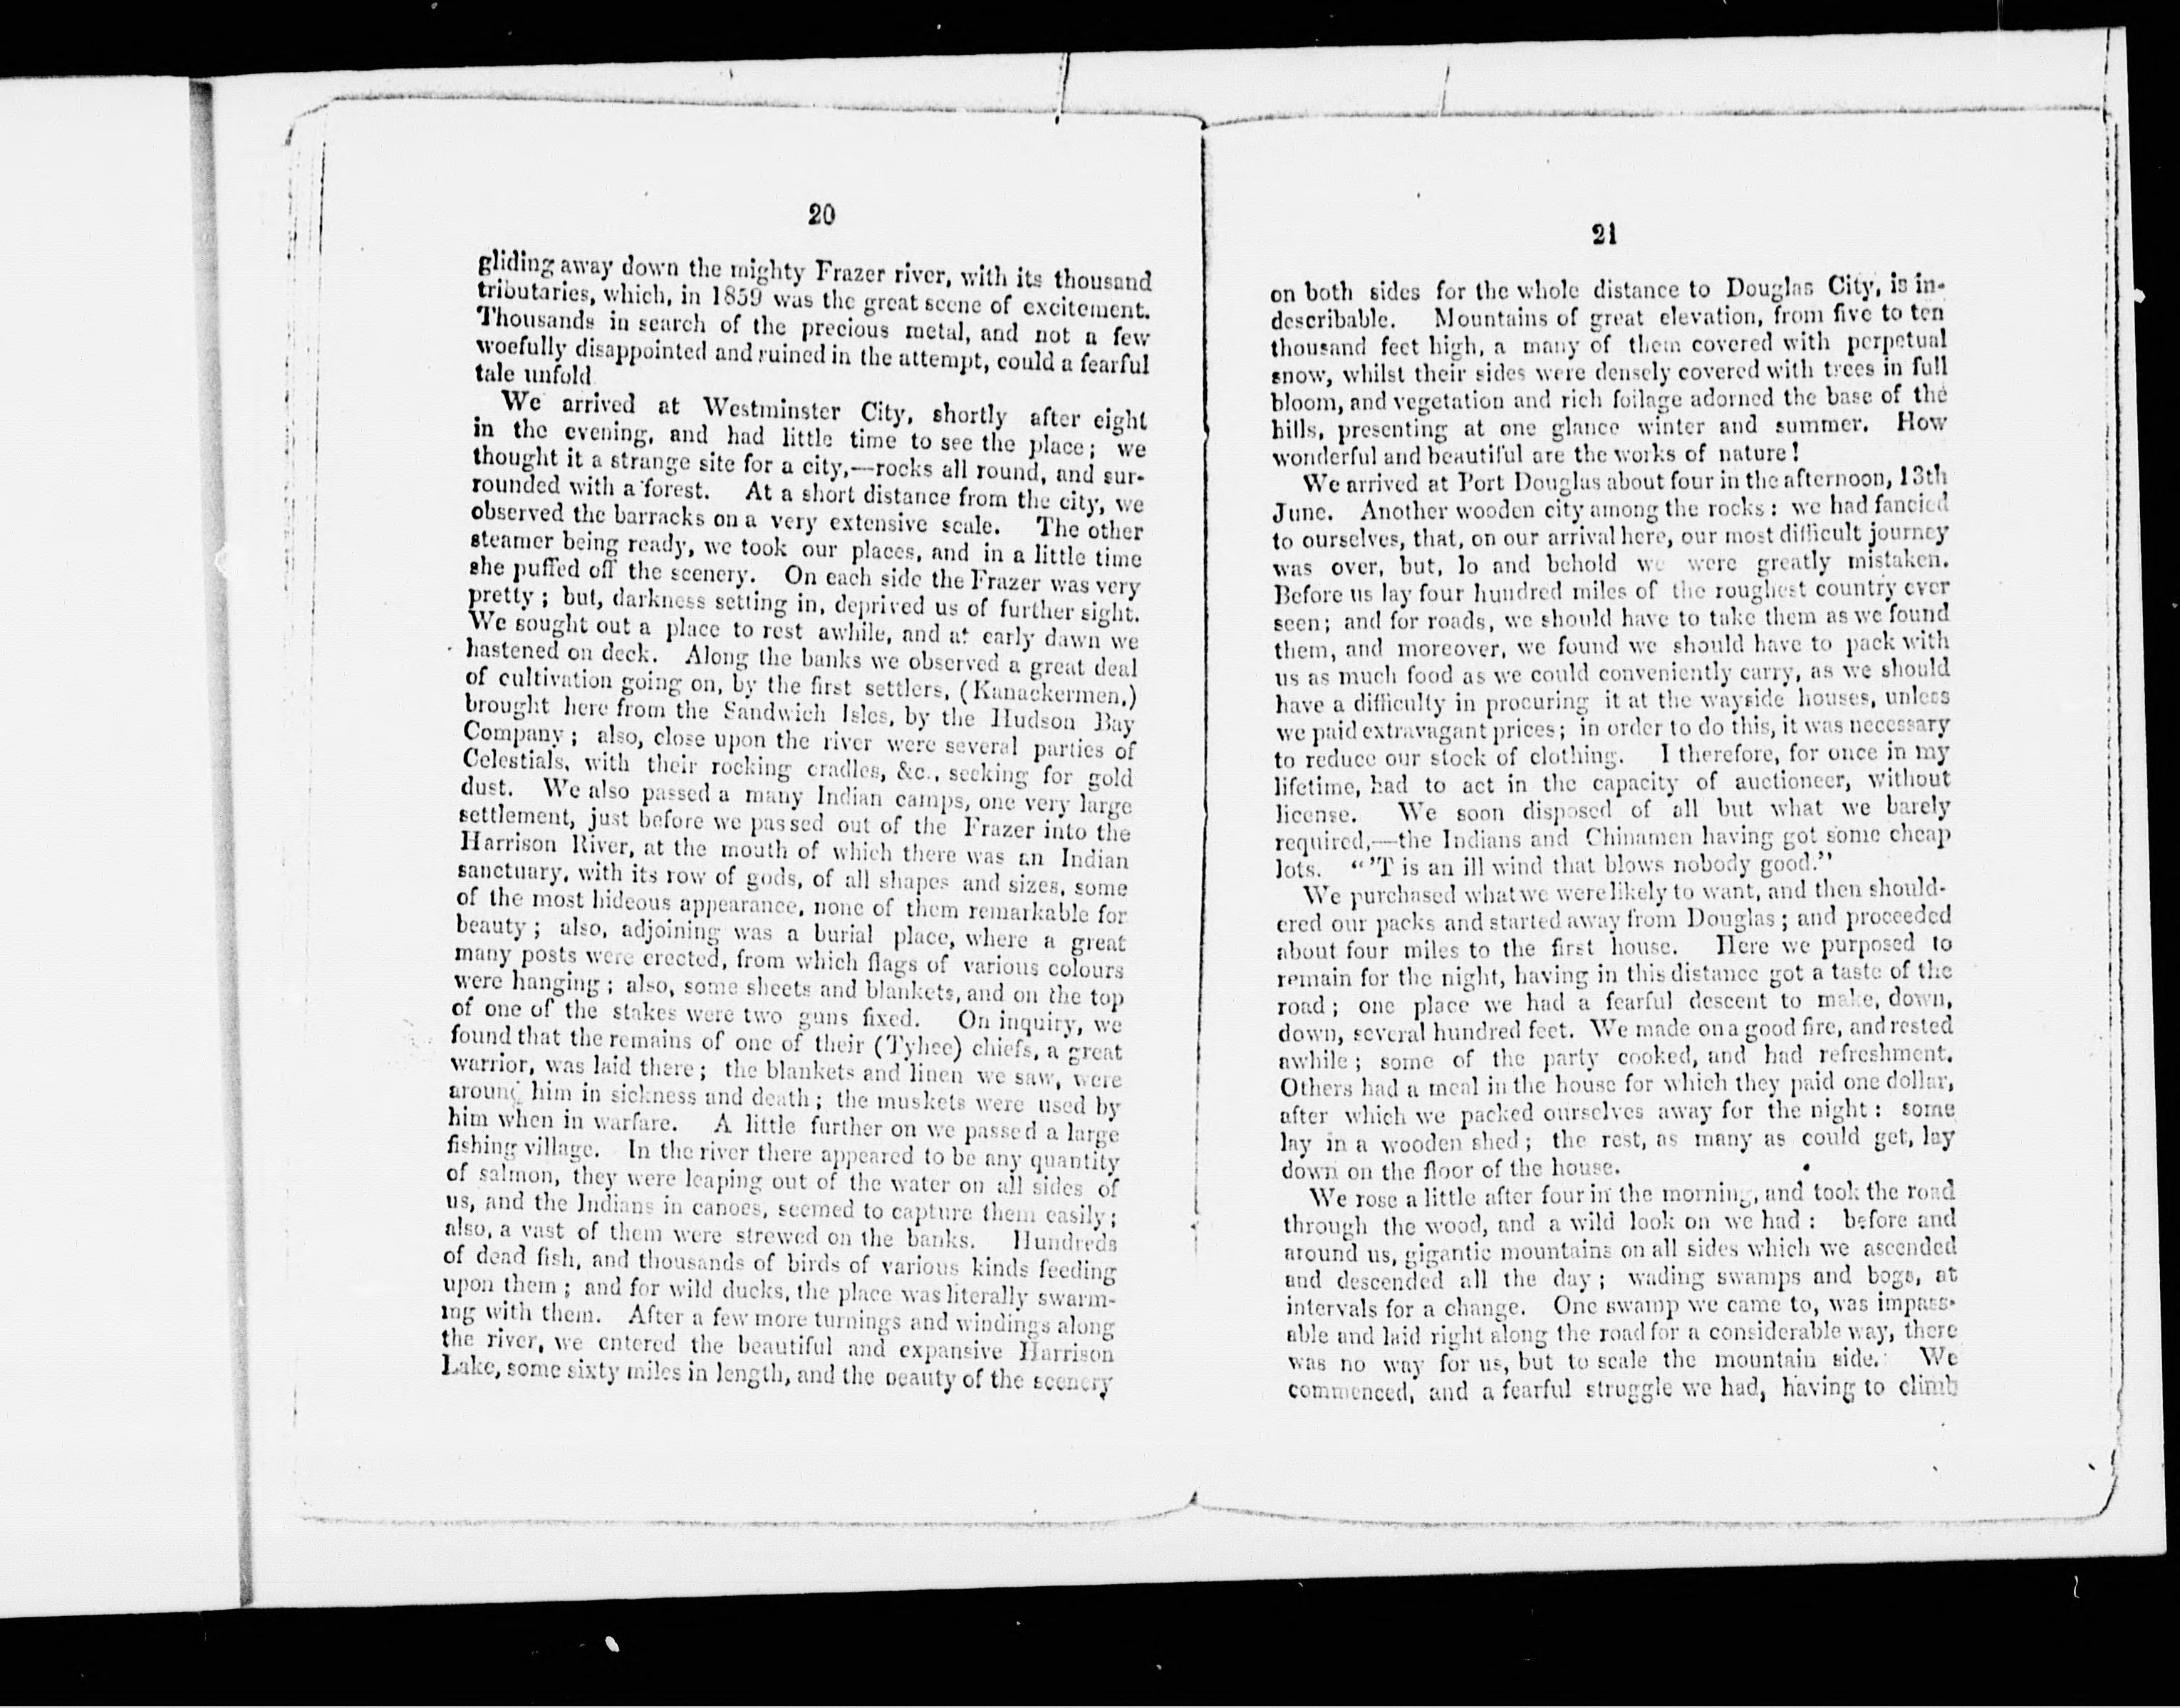 20
gliding away down the mighty Frazer river, with its thousand
tributaries, which, in 1859 was the great scene of excitement.
Thousands in search of the precious metal, and not a few
woefully disappointed and ruined in the attempt, could a fearful
tale unfold
We arrived at Westminster City, shortly after eight
in the evening, and had little time to see the place; we
thought it a strange site for a city,—rocks all round, and sur-
rounded with a forest. At a short distance from the city, we
observed the barracks on a very extensive scale. The other
steamer being ready, we took our places, and in a little time
she puffed off the scenery. On each side the Frazer was very
pretty; but, darkness setting in, deprived us of further sight.
We sought out a place to rest awhile, and at early dawn we
hastened on deck. Along the banks we observed a great deal
of cultivation going on, by the first settlers, (Kanackermen,)
brought here from the Sandwich Isles, by the Hudson Bay
Company; also, close upon the river were several parties of
Celestials, with their rocking cradles, &c., seeking for gold
dust. We also passed a many Indian camps, one very large
settlement, just before we passed out of the Frazer into the
Harrison River, at the mouth of which there was an Indian
sanctuary, with its row of gods, of all shapes and sizes, some
of the most hideous appearance, none of them remarkable for
beauty; also, adjoining was a burial place, where a great
many posts were erected, from which flags of various colours
were hanging; also, some sheets and blankets, and on the top
of one of the stakes were two guns fixed. On inquiry, we
found that the remains of one of their (Tyhee) chiefs, a great
warrior, was laid there; the blankets and linen we saw, were
around him in sickness and death; the muskets were used by
him when in warfare. A little further on we passed a large
fishing village. In the river there appeared to be any quantity
of salmon, they were leaping out of the water on all sides of
us, and the Indians in canoes, seemed to capture them easily;
also, a vast of them were strewed on the banks. Hundreds
of dead fish, and thousands of birds of various kinds feeding
upon them; and for wild ducks, the place was literally swarm-
ing with them. After a few more turnings and windings along
the river, we entered the beautiful and expansive Harrison
Lake, some sixty miles in length, and the beauty of the scenery
21
on both sides for the whole distance to Douglas City, is in-
describable. Mountains of great elevation, from five to ten
thousand feet high, a many of them covered with perpetual
snow, whilst their sides were densely covered with trees in full
bloom, and vegetation and rich foilage adorned the base of the
hills, presenting at one glance winter and summer. How
wonderful and beautiful are the works of nature!
We arrived at Port Douglas about four in the afternoon, 13th
June. Another wooden city among the rocks: we had fancied
to ourselves, that, on our arrival here, our most difficult journey
was over, but, lo and behold we were greatly mistaken.
Before us lay four hundred miles of the roughest country ever
seen; and for roads, we should have to take them as we found
them, and moreover, we found we should have to pack with
us as much food as we could conveniently carry, as we should
have a difficulty in procuring it at the wayside houses, unless
we paid extravagant prices; in order to do this, it was necessary
to reduce our stock of clothing. I therefore, for once in my
lifetime, had to act in the capacity of auctioneer, without
license. We soon disposed of all but what we barely
required,—the Indians and Chinamen having got some cheap
lots. "'T is an ill wind that blows nobody good."
We purchased what we were likely to want, and then should-
ered our packs and started away from Douglas; and proceeded
about four miles to the first house. Here we purposed to
remain for the night, having in this distance got a taste of the
road; one place we had a fearful descent to make, down,
down, several hundred feet. We made on a good fire, and rested
awhile; some of the party cooked, and had refreshment.
Others had a meal in the house for which they paid one dollar,
after which we packed ourselves away for the night: some
lay in a wooden shed; the rest, as many as could get, lay
down on the floor of the house.
We rose a little after four in the morning, and took the road
through the wood, and a wild look on we had: before and
around us, gigantic mountains on all sides which we ascended
and descended all the day; wading swamps and bogs, at
intervals for a change. One swamp we came to, was impass-
able and laid right along the road for a considerable way, there
was no way for us, but to scale the mountain side. We
commenced, and a fearful struggle we had, having to climb